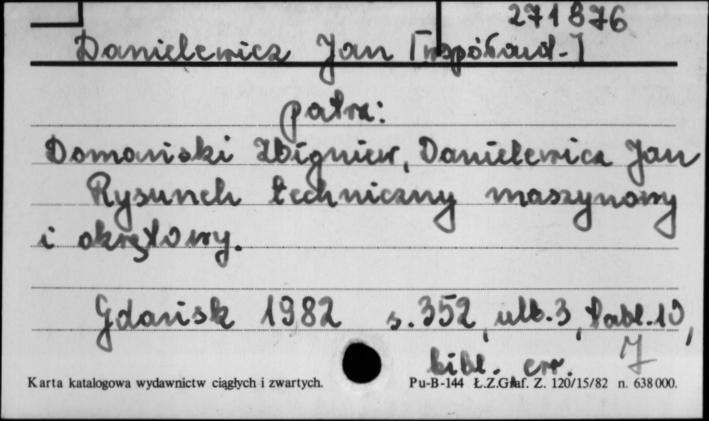 271876
Danielewicz Jan [współaut.]
patrz:
Domański Zbigniew, Danielewicz Jan
Rysunek techniczny maszynowy
i okrętowy.
Gdańsk 1982 s. 352, ulb. 3, tabl. 10,
bibl. err.
Karta katalogowa wydawnictw ciągłych i zwartych. Pu-B-144 Ł.Z.Graf. Z. 120/15/82 n. 638000.